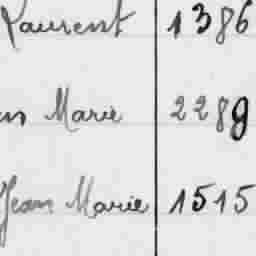 Laurent 1386
Marie 2289
Jean Marie 1515